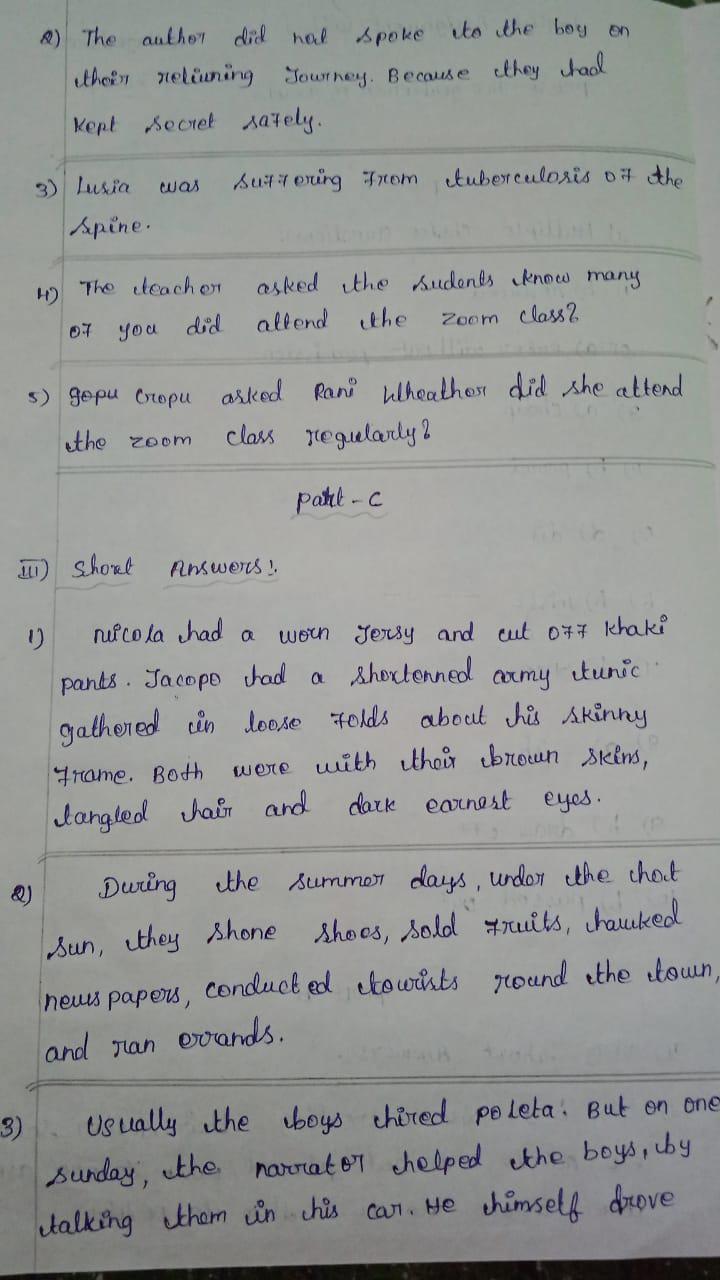 2) The author did not spoke to the boy on
their retiuning Journey. Because they had
kept secret safely.
3) Lusia was suffering from tuberculosis of the
spine.
4) The teacher asked the sudents know many
of you did attend the zoom class?
5) gopu Cropu asked Rani Wheather did she attend
the zoom class regularly?
Part - C
III) Short Answers:
1) Nicola had a worn Jersy and cut off khaki
pants. Jacopo had a shortenned army tunic
gathered in loose folds about his skinny
frame. Both were with their brown skins,
tangled hair and dark earnest eyes.
2) During the summer days, under the hot
sun, they shone shoes, sold fruits, hawked
news papers, conducted towrists round the town,
and ran errands.
3) Usually the boys hired poleta. But on one
sunday, the narrator helped the boys, by
talking them in his car. He himself drove